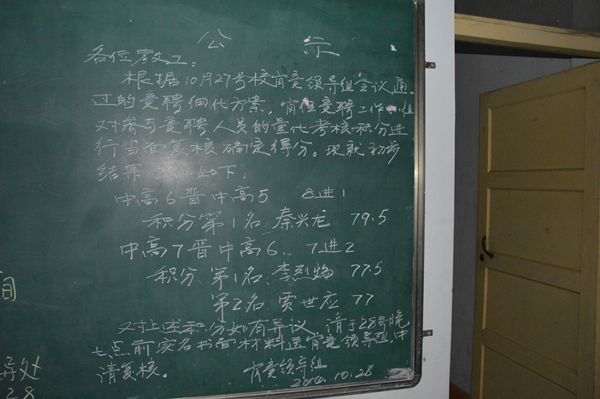 公 示
各位教工:
根据10月27号校岗竞领导组会议通
过的竞聘细化方案,岗位竞聘工作组
对参与竞聘人员的量化考核积分进
行当面复核确定得分。现就初步
结果 如下:
中高6晋中高5 8进1
积分第1名、秦兴龙 79.5
中高7晋中高6.. 7进2
积分、第1名、李烈焰 77.5
第2名 贾世应 77
对上述积分如有异议,请于28号晚
七点前实名书面材料送岗竞领导组申
请复核。
岗竞领导组
10.28
间
导处
28